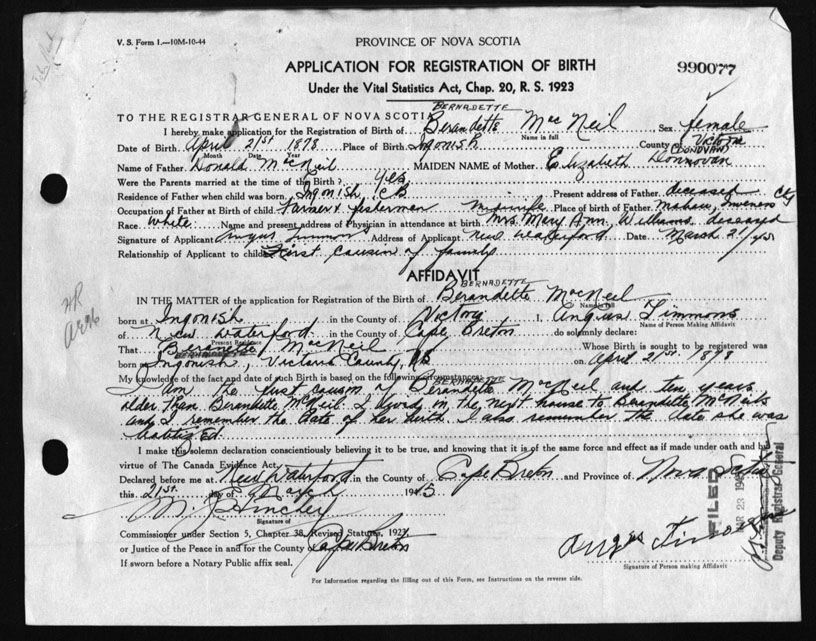 V. S. Form 1.—10M-10-44
PROVINCE OF NOVA SCOTIA
APPLICATION FOR REGISTRATION OF BIRTH
990077
Under the Vital Statistics Act, Chap. 20, R. S. 1923
BERNADETTE
TO THE REGISTRAR GENERAL OF NOVA SCOTIA
I hereby make application for the Registration of Birth of Berandette MacNeil Sex female
Name in full
Date of Birth April 21st 1898 Place of Birth Ingonish County of Victoria
Month Date Year
(DONOVAN)
Name of Father Donald McNeil MAIDEN NAME of Mother Elizabeth Donnovan
Were the Parents married at the time of the Birth? yes
Residence of Father when child was born Ingonish, CB Present address of Father deceased
Occupation of Father at Birth of child Farmer & fisherman Place of Birth of Father Mabou, Inverness Cty
Race White Name and present address of Physician in attendance at birth midwife Mrs. Mary Ann Williams, deceased
Signature of Applicant Angus Timmons Address of Applicant New Waterford Date March 21/45
Relationship of Applicant to child First cousin of family
AFFIDAVIT
BERNADETTE
IN THE MATTER of the application for Registration of the Birth of Berandette McNeil
Name in full
born at Ingonish in the County of Victory I, Angus Timmons
Name of Person Making Affidavit
of New Waterford in the County of Cape Breton do solemnly declare:
Present Residence
That Berandette McNeil Whose Birth is sought to be registered was
born Ingonish, Victoria County, NS on April 21st 1898
My knowledge of the fact and date of such Birth is based on the following circumstances:
BERNADETTE
I am the first cousin of Berandette McNeil and ten years
older than Berandette McNeil. I lived in the next house to Berandette McNeils
and I remember the date of her birth. I also remember the date she was
babtized
I make this solemn declaration conscientiously believing it to be true, and knowing that it is of the same force and effect as if made under oath and by
virtue of The Canada Evidence Act.
Declared before me at New Waterford in the County of Cape Breton and Province of Nova Scotia
this 21st. day of March 1945
M. J. Hinchey
Signature of
Commissioner under Section 5, Chapter 38, Revised Statutes, 1923,
or Justice of the Peace in and for the County Cape Breton
If sworn before a Notary Public affix seal.
Angus Timmons
Signature of Person making Affidavit
FILED
MAR 23
Deputy Registrar General
For Information regarding the filling out of this Form, see Instructions on the reverse side.